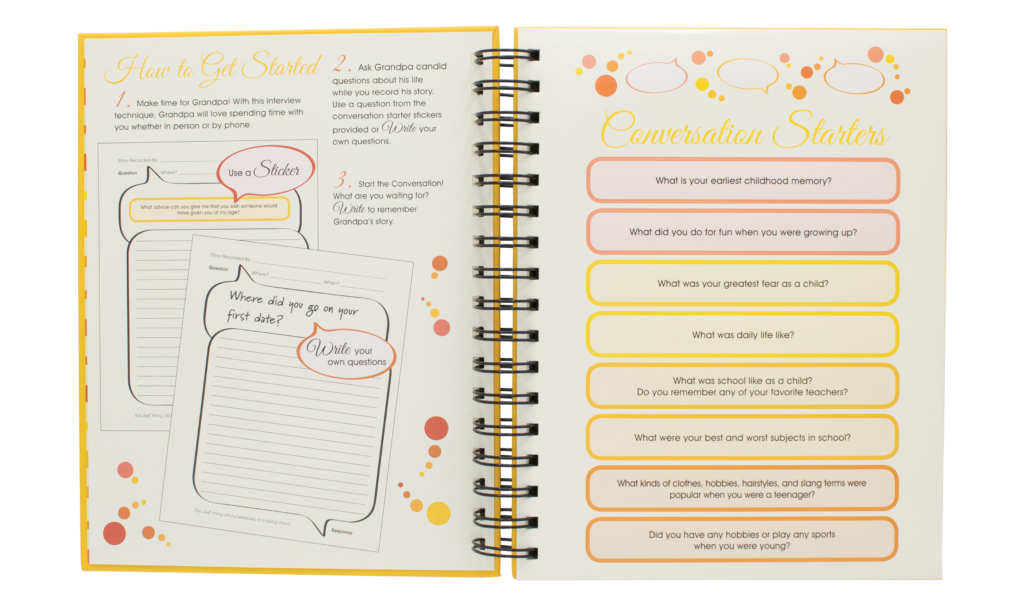 How to Get Started
1. Make time for Grandpa! With this interview
technique, Grandpa will love spending time with
you whether in person or by phone.
2. Ask Grandpa candid
questions about his life
while you record his story.
Use a question from the
conversation starter stickers
provided or Write your
own questions.
3. Start the Conversation!
What are you waiting for?
Write to remember
Grandpa's story.
Story Recorded By
Question
Where?
Use a Sticker
What advice can you give me that you wish someone would
have given you at my age?
The best thing
Story Recorded By
Question
Where?
When?
Where did you go on your
first date?
Write your
own questions
The best thing about memories is making them
Response
Conversation Starters
What is your earliest childhood memory?
What did you do for fun when you were growing up?
What was your greatest fear as a child?
What was daily life like?
What was school like as a child?
Do you remember any of your favorite teachers?
What were your best and worst subjects in school?
What kinds of clothes, hobbies, hairstyles, and slang terms were
popular when you were a teenager?
Did you have any hobbies or play any sports
when you were young?